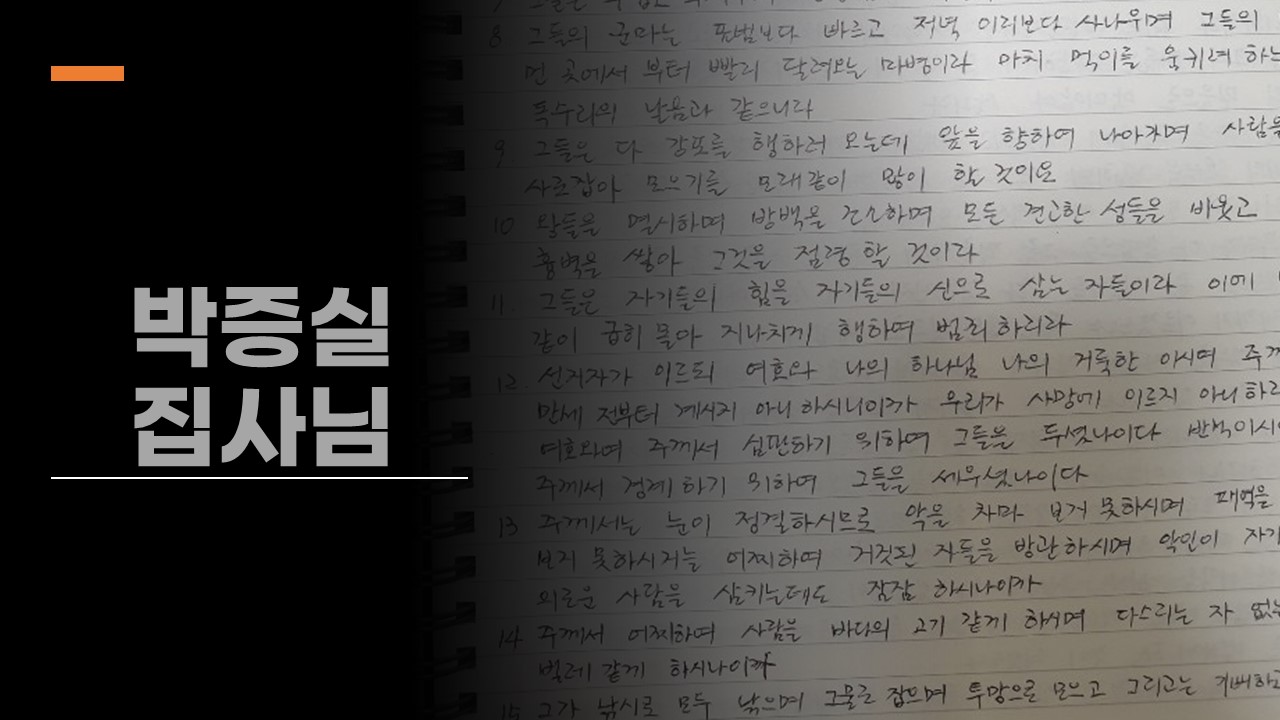 박증실
집사님
8 그들의 군마는 표범보다 빠르고 저녁 이리보다 사나우며 그들의
먼 곳에서 부터 빨리 달려오는 마병이라 마치 먹이를 움키려 하는
독수리의 날음과 같으니라
9 그들은 다 강포를 행하러 오는데 앞을 향하여 나아가며 사람을
사로잡아 모으기를 모래같이 많이 할 것이요
10 왕들을 멸시하며 방백을 조소하며 모든 견고한 성들을 비웃고
흉벽을 쌓아 그것을 점령 할 것이라
11. 그들은 자기들의 힘을 자기들의 신으로 삼는 자들이라 이에
같이 급히 몰아 지나치게 행하여 범죄하리라
12. 선지자가 이르되 여호와 나의 하나님 나의 거룩한 이시여 주께
만세 전부터 계시지 아니하시니이까 우리가 사망에 이르지 아니하리
여호와여 주께서 심판하기 위하여 그들을 두셨나이다 반석이시
주께서 경계하기 위하여 그들을 세우셨나이다
13 주께서는 눈이 정결하시므로 악을 차마 보지 못하시며 패역을
보지 못하시거늘 어찌하여 거짓된 자들을 방관하시며 악인이 자기
의로운 사람을 삼키는데도 잠잠 하시나이까
14 주께서 어찌하여 사람을 바다의 고기 같게 하시며 다스리는 자 없는
벌레 같게 하시나이까
15 그가 낚시로 모두 낚으며 그물로 잡으며 투망으로 모으고 그리고는 기뻐하고